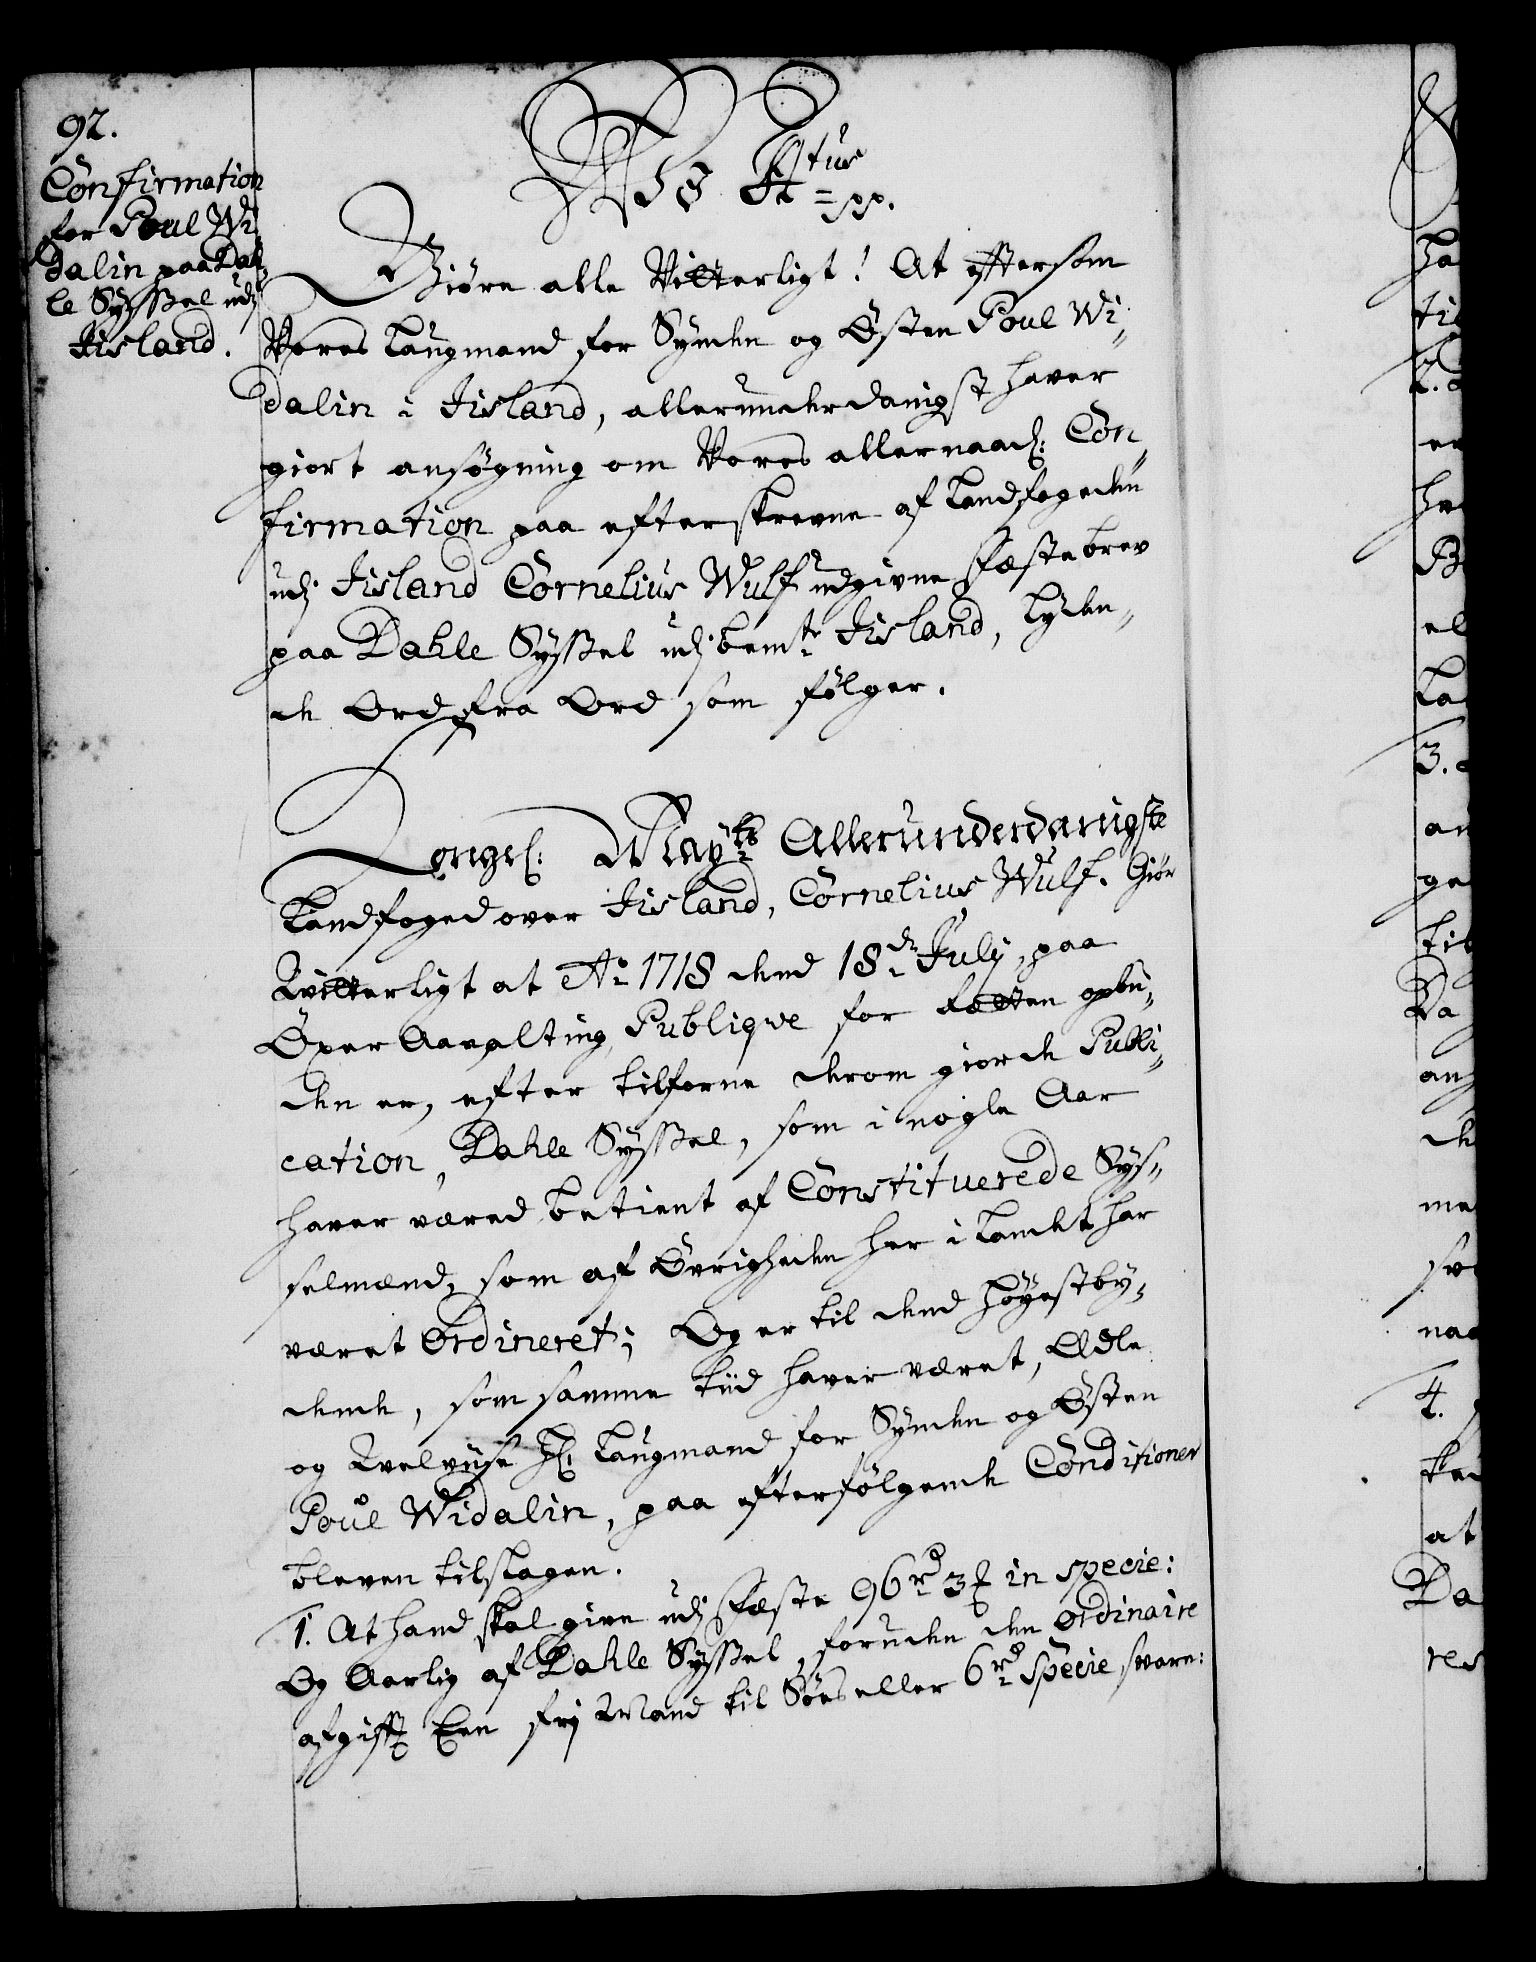 92.
Confirmation
for Poul Wi„
dalin paa Dah„
le Syssel udj
Jisland.
Wj Fr 4tus pp.
Giöre alle Vitterligt! At eftersom
Vores Laugmand for Synden og Østen Poul Wi„
dalin i Jisland, allerunderdanigst haver
giort ansøgning om Vores allernaad: Con„
firmation paa efterskrevne af Landfogeden
udj Jisland Cornelius Wulf udgivne Fæstebrev
paa Dahle Syssel udj bemte Jisland, lyden„
de Ord fra Ord som følger.
Kongel: Mayts Allerunderdanigste
Landfoged over Jisland, Cornelius Wulf. Giör
Vitterligt at Ao 1718 dend 18de July, paa
Øxer Aaealting, Publiqve for Retten opbu„
den er, efter tilforne derom giorde Publi„
cation, Dahle Syssel, som i nogle Aar
haver væred betient af Constituerede Sys„
selmænd, som af Øvrigheden her i Landet har
været Ordineret; Og er til dend höyestby„
dende, som samme tiid haver været, Edle
og Velvise Hr. Laugmand for Synden og Østen
Poul Widalin, paa efterfølgende Conditioner
bleven tilslagen.
1. At hand skal give udj Fæste 96 rd 3 ß in specie:
Og Aarlig af Dahle Syssel, foruden den ordinaire
afgift Een frj Mand til Söes eller 6 rd specie svare:
ha
til
2.
er
B
el
La
3.
an
ge
til
Da
an
de
me
naa
4.
at
Da
res